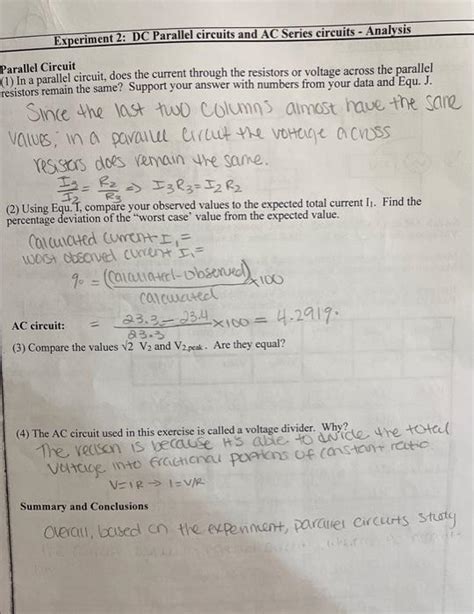 Experiment 2: DC Parallel circuits and AC Series circuits - Analysis
Parallel Circuit
(1) In a parallel circuit, does the current through the resistors or voltage across the parallel
resistors remain the same? Support your answer with numbers from your data and Equ. J.
Since the last two columns almost have the same
values, in a parallel circuit the voltage across
resistors does remain the same.
I₃/I₂ = R₂/R₃ => I₃R₃=I₂R₂
(2) Using Equ. I, compare your observed values to the expected total current I₁. Find the
percentage deviation of the "worst case' value from the expected value.
Calculated current I₁ =
worst observed current I₁ =
% = (calculated-observed)/calculated x100
AC circuit: = 23.3 - 23.4/23.3 x100 = 4.291%
(3) Compare the values √2 V₂ and V₂,peak. Are they equal?
(4) The AC circuit used in this exercise is called a voltage divider. Why?
The reason is because it's able to divide the total
voltage into fractional portions of constant ratio.
V=IR → I=V/R
Summary and Conclusions
Overall, based on the experiment, parallel circuits study